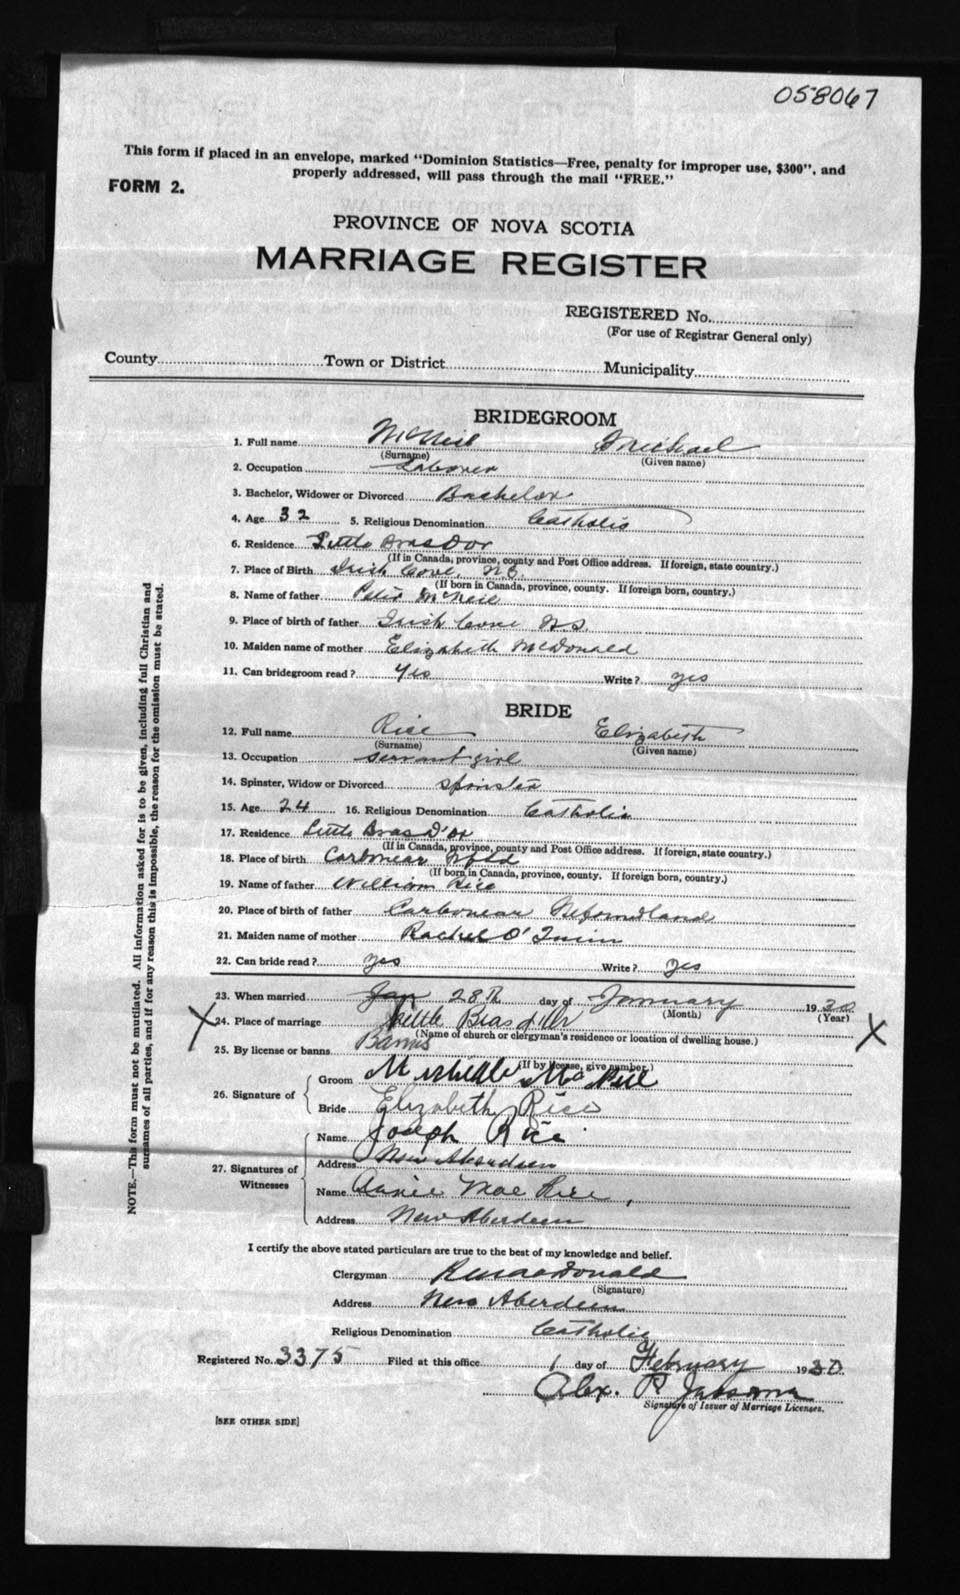 058067
This form if placed in an envelope, marked "Dominion Statistics—Free, penalty for improper use, $300", and
properly addressed, will pass through the mail "FREE."
FORM 2.
PROVINCE OF NOVA SCOTIA
MARRIAGE REGISTER
REGISTERED No.
(For use of Registrar General only)
County Town or District Municipality
BRIDEGROOM
1. Full name McNeil Michael
(Surname) (Given name)
2. Occupation Laborer
3. Bachelor, Widower or Divorced Bachelor
4. Age 32 5. Religious Denomination Catholic
6. Residence Little Bras Dor
(If in Canada, province, county and Post Office address. If foreign, state country.)
7. Place of Birth Irish Cove, NS.
(If born in Canada, province, county. If foreign born, country.)
8. Name of father Peter McNeil
9. Place of birth of father Irish Cove NS.
10. Maiden name of mother Elizabeth McDonald
11. Can bridegroom read? Yes Write? yes
BRIDE
12. Full name Rice Elizabeth
(Surname) (Given name)
13. Occupation servant girl
14. Spinster, Widow or Divorced spinster
15. Age 24 16. Religious Denomination Catholic
17. Residence Little Bras D'or
(If in Canada, province, county and Post Office address. If foreign, state country.)
18. Place of birth Carbonear Nfld
(If born in Canada, province, county. If foreign born, country.)
19. Name of father William Rice
20. Place of birth of father Carbonear
21. Maiden name of mother Rachel O'
22. Can bride read? yes Write? yes
23. When married Jan 28th day of January 1930
(Month) (Year)
X 24. Place of marriage Little Bras X
(Name of church or clergyman's residence or location of dwelling house.)
25. By license or banns Banns
(If by license, give number.)
26. Signature of Groom McNeil
Bride Elizabeth Rice
27. Signatures of Witnesses
Name Joseph Rice
Address New Aberdeen
Name Annie Mae Rice,
Address New Aberdeen
I certify the above stated particulars are true to the best of my knowledge and belief.
Clergyman MacDonald
(Signature)
Address New Aberdeen
Religious Denomination Catholic
Registered No. 3375 Filed at this office 1 day of February 1930
Alex. P.
Signature of Issuer of Marriage Licenses.
[SEE OTHER SIDE]
NOTE.—This form must not be mutilated. All information asked for is to be given, including full Christian and
surnames of all parties, and if for any reason this is impossible, the reason for the omission must be stated.